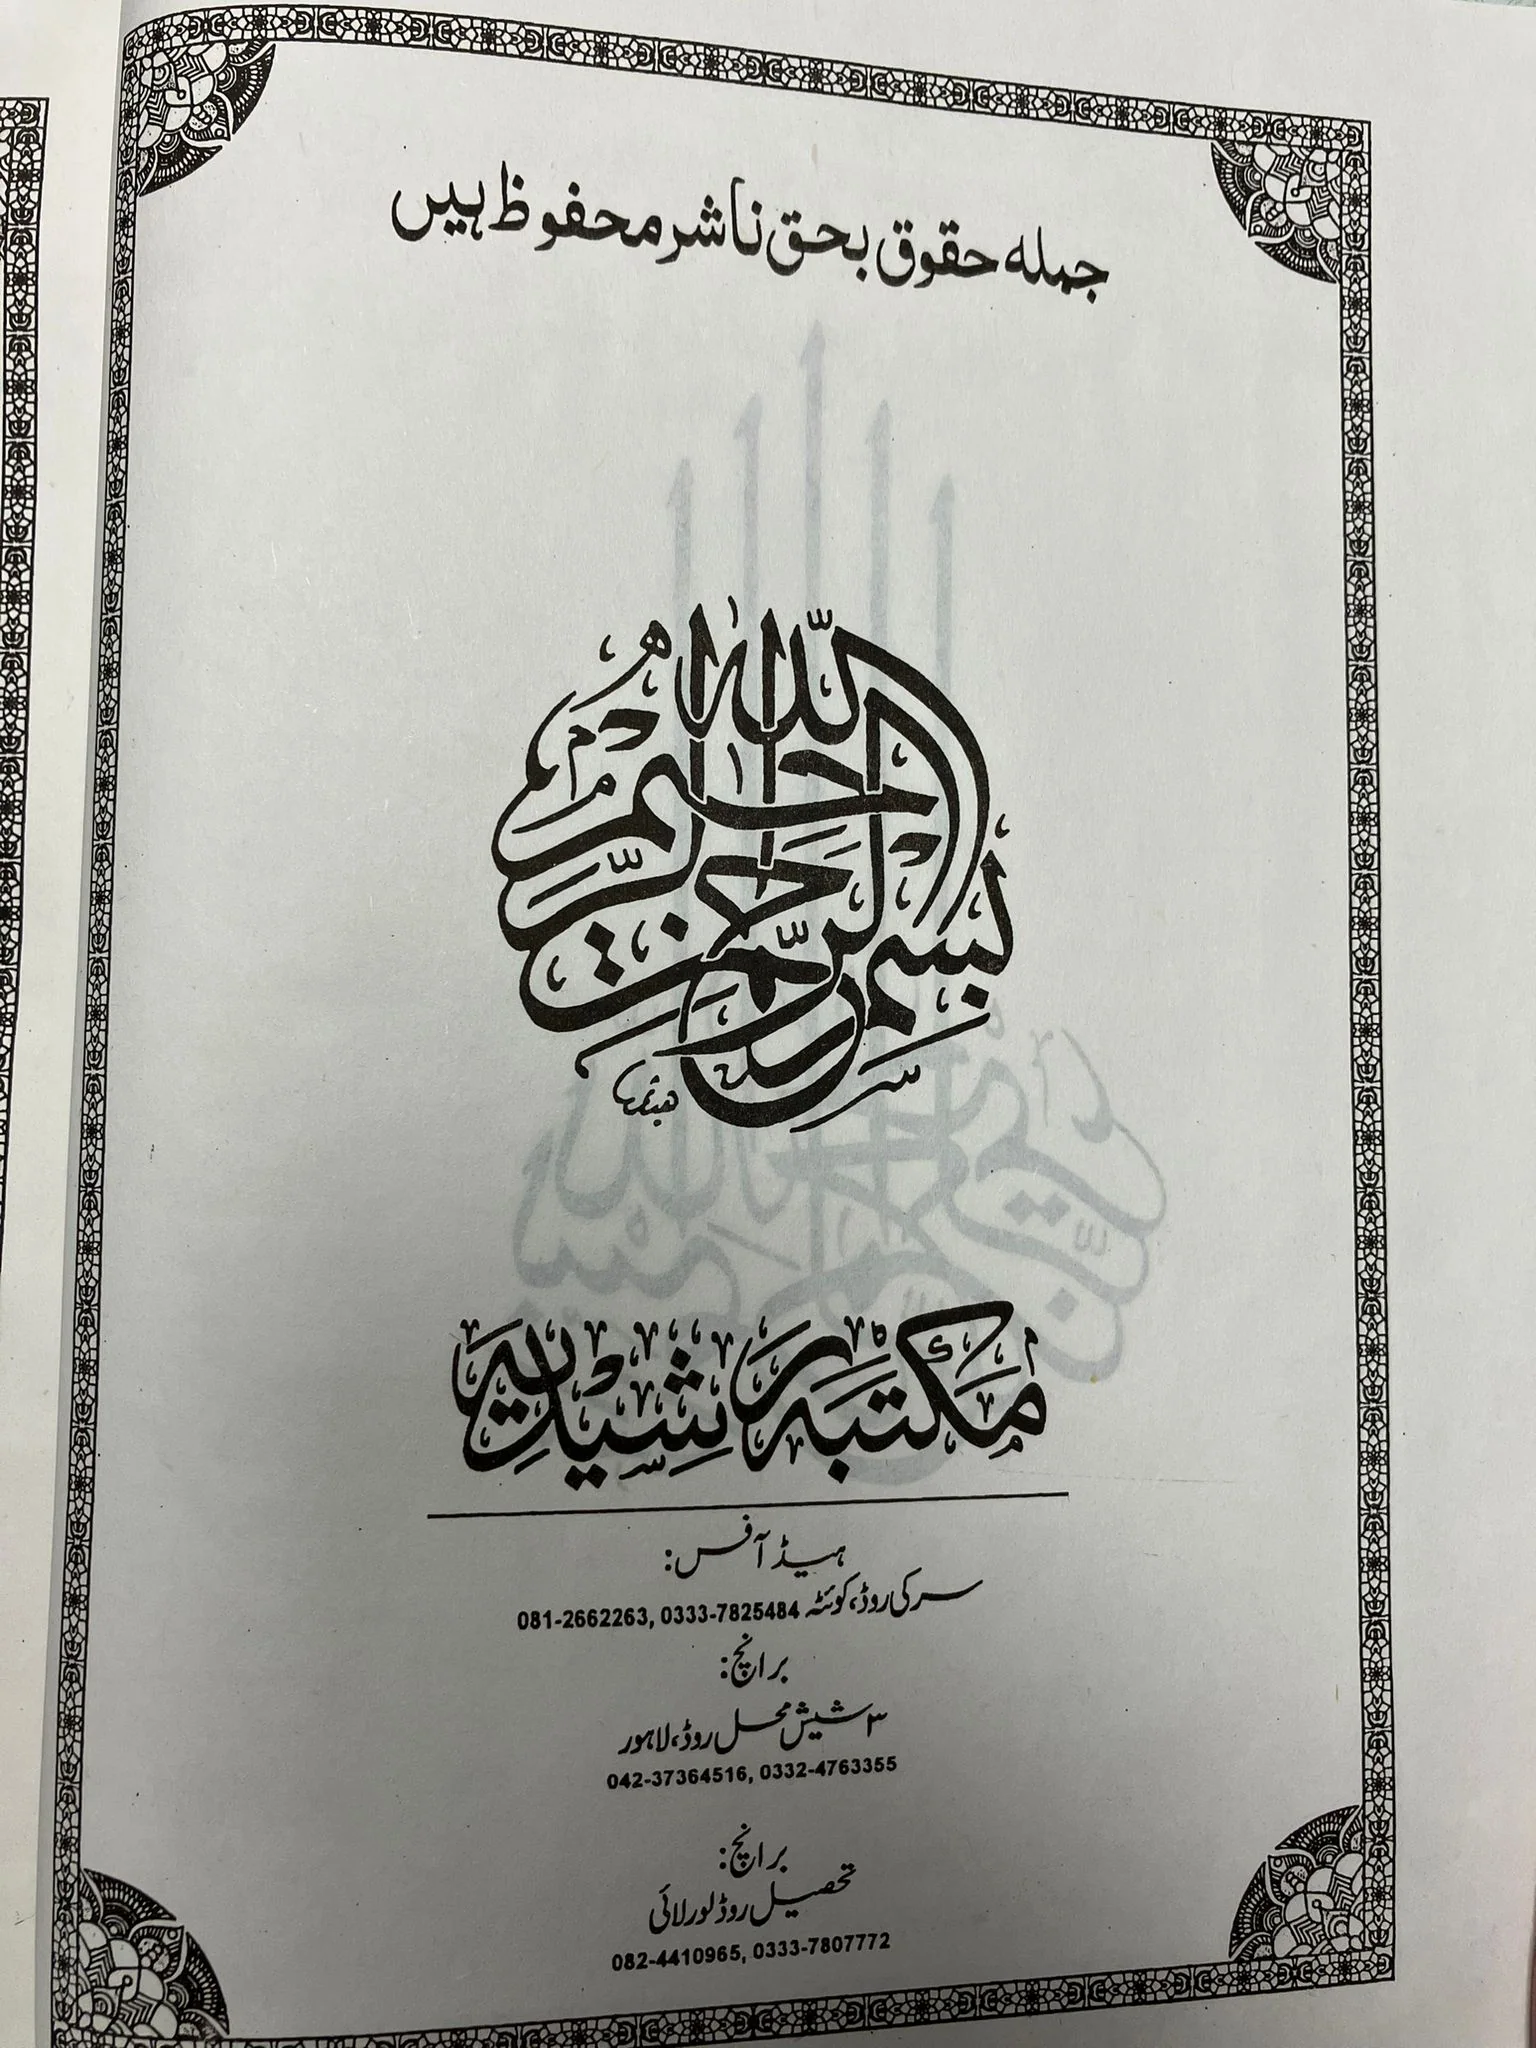 جملہ حقوق بحق ناشر محفوظ ہیں
بسم الله الرحمن الرحيم
مکتبہ رشیدیہ
ہیڈ آفس:
سرکی روڈ، کوئٹہ 081-2662263, 0333-7825484
برانچ:
۳ شیش محل روڈ، لاہور
042-37364516, 0332-4763355
برانچ:
تحصیل روڈ لورلائی
082-4410965, 0333-7807772